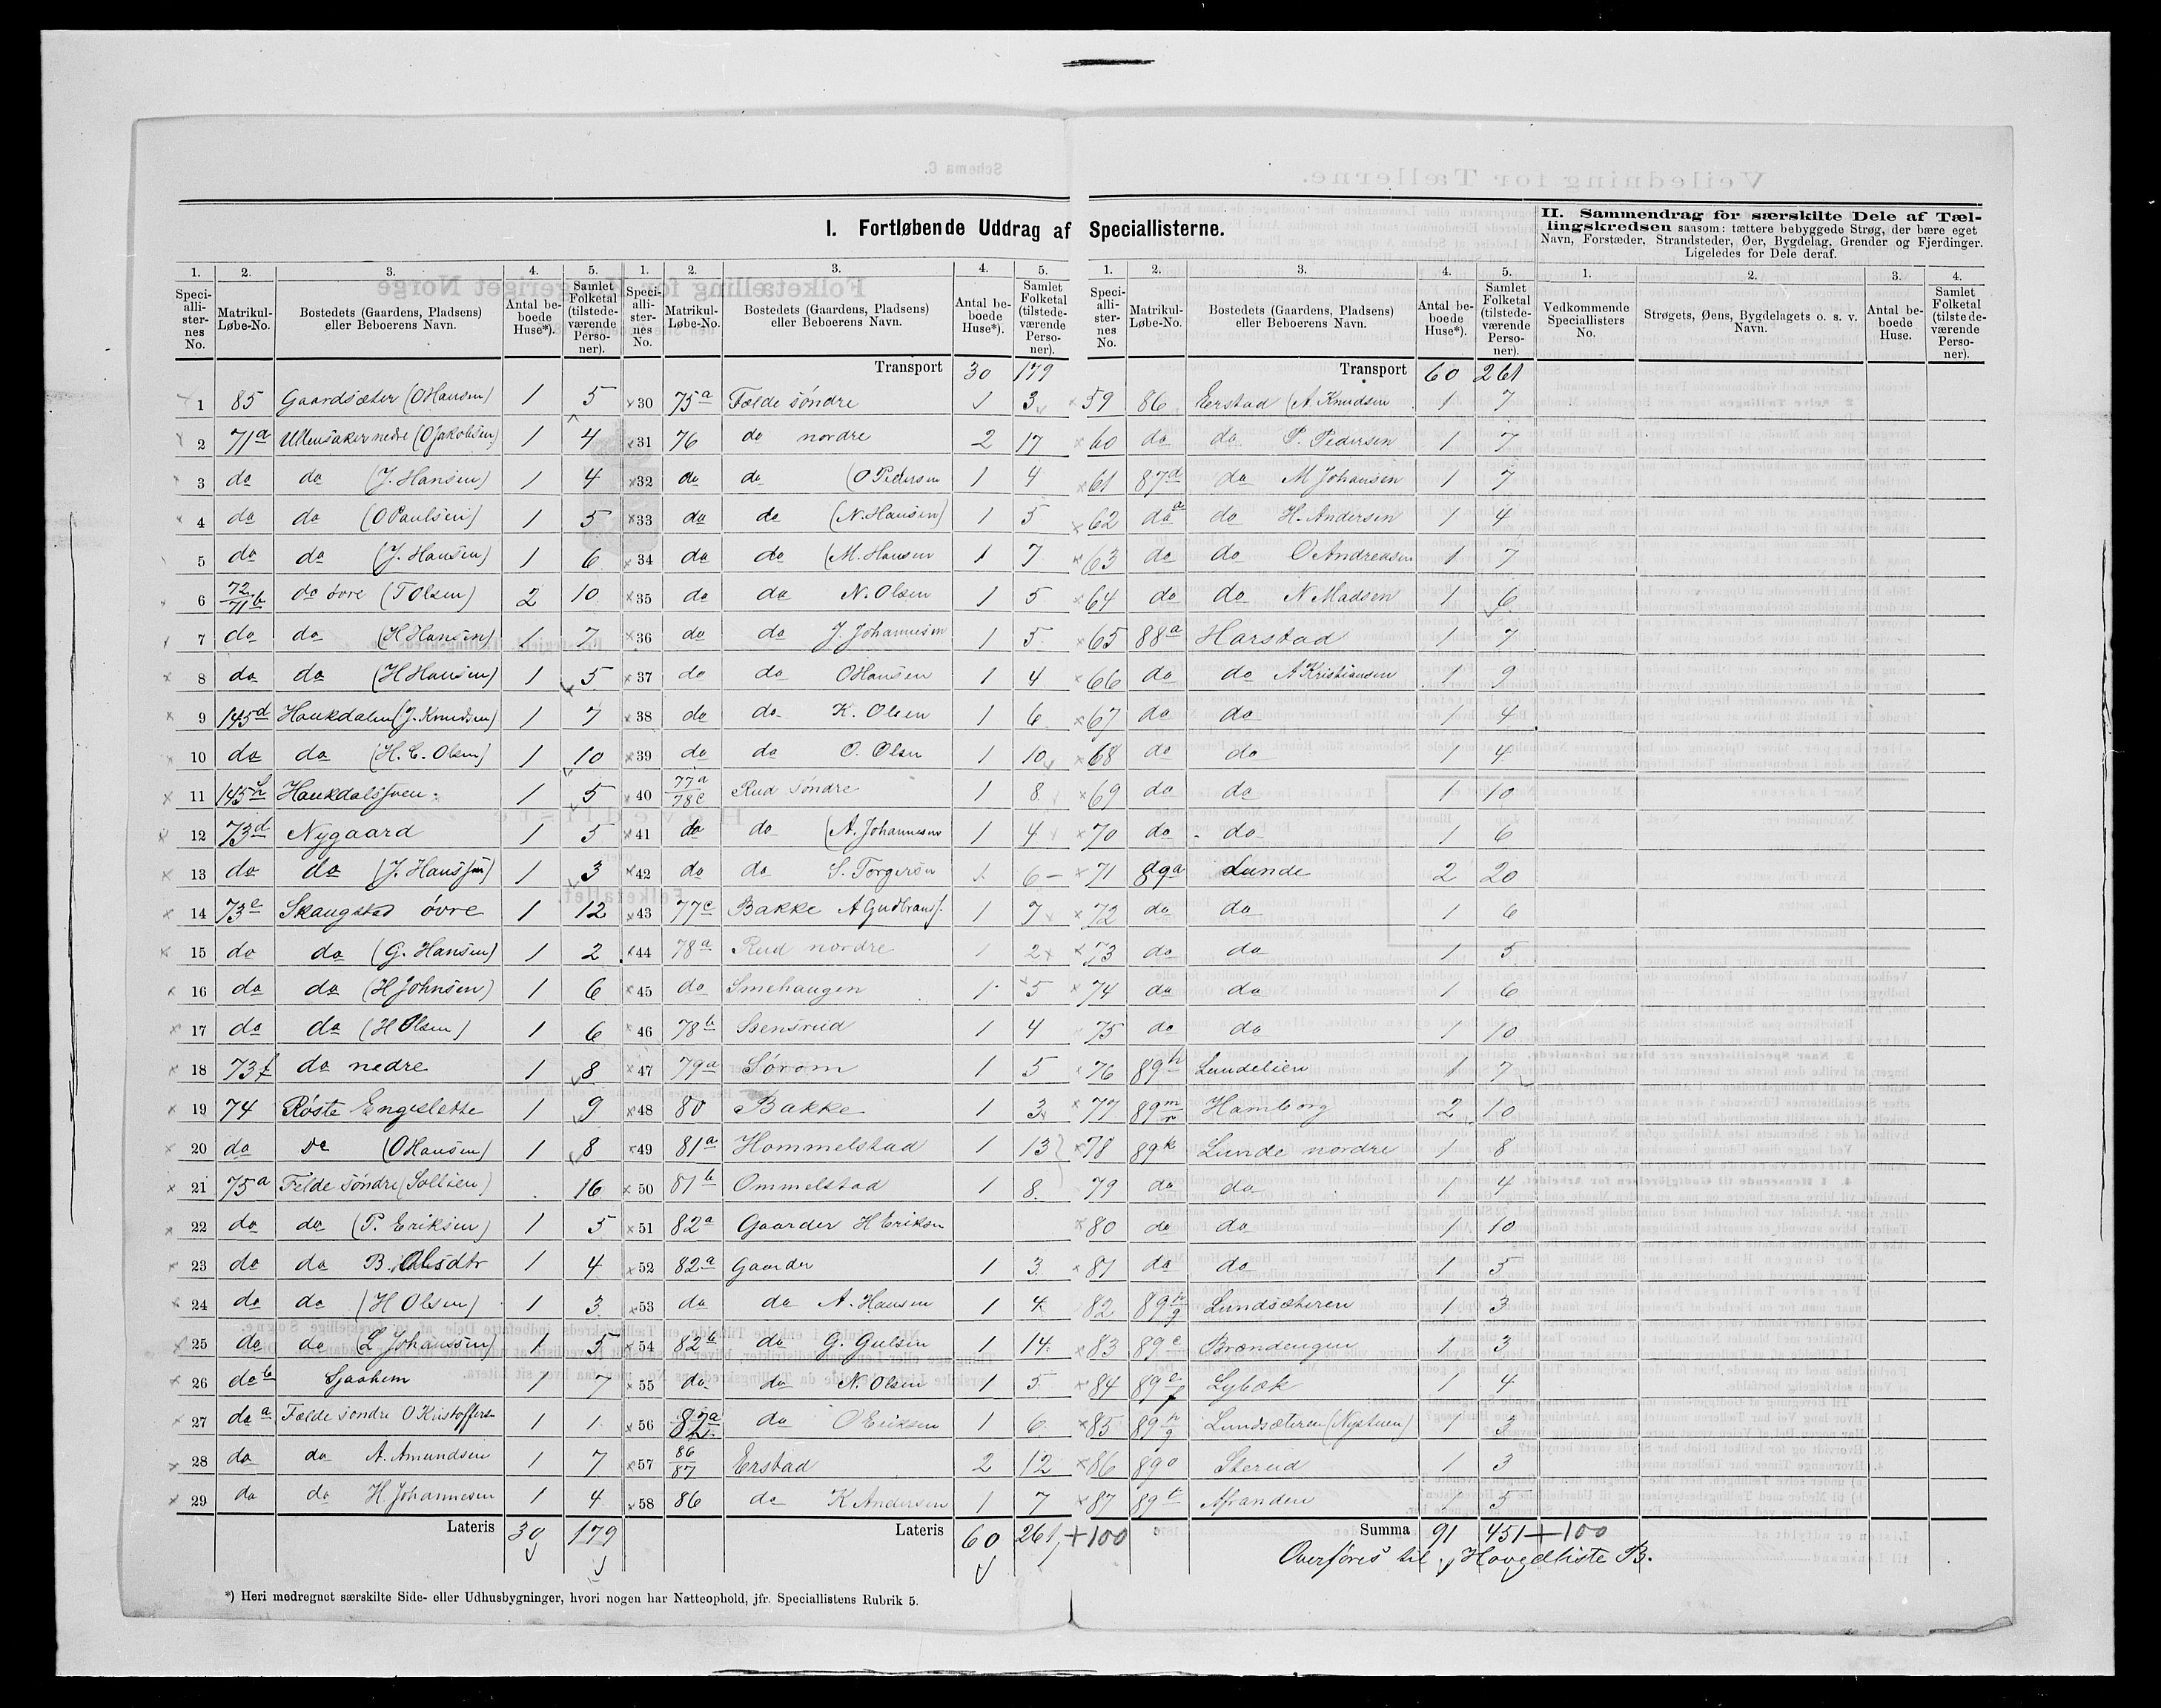 I. Fortløbende Uddrag af Speciallisterne.
II. Sammendrag for særskilte Dele af Tællingskredsen saasom: tættere bebyggede Strøg, der bære eget
Navn, Forstæder, Strandsteder, Øer, Bygdelag, Grender og Fjerdinger.
Ligeledes for Dele deraf.
1. 2. 3. 4. 5.
Speciallisternes No. Matrikul-Løbe-No. Bostedets (Gaardens, Pladsens) eller Beboerens Navn. Antal beboede Huse*). Samlet Folketal (tilstedeværende Personer).
1 85 Gaardsæter (O Hansen) 1 5
2 71a Ullensaker nedre (O Jakobsen) 1 4
3 do do (J. Hansen) 1 4
4 do do (O Paulsen) 1 5
5 do do (J. Hansen) 1 6
6 72/71b do øvre (T Olsen) 2 10
7 do do (H Hansen) 1 7
8 do do (H Hansen) 1 5
9 145d Haukdalen (J. Knudsen) 1 7
10 do do (H. C. Olsen) 1 10
11 145h 1 5
12 73d Nygaard 1 5
13 do do (J. Hanssen) 1 3
14 73e Skaugstad øvre 1 12
15 do do (G. Hansen) 1 2
16 do do (H Johnsen) 1 6
17 do do (H Olsen) 1 6
18 73f do nedre 1 8
19 74 Røste Engeslette 1 9
20 do do (O Hansen) 1 8
21 75a Felde søndre (Sollien) 16
22 do do (P. Eriksen) 1 5
23 do do B. Olsdtr 1 4
24 do do (H Olsen) 1 3
25 do do (L Johanssen) 1 5
26 do b Sjaahem 1 7
27 do a Fælde søndre O Kristoffers 1 1
28 do do A. Amundsen 1 7
29 do do H. Johannesen 1 4
Lateris 30 179
1. 2. 3. 4. 5.
Speciallisternes No. Matrikul-Løbe-No. Bostedets (Gaardens, Pladsens) eller Beboerens Navn. Antal beboede Huse*). Samlet Folketal (tilstedeværende Personer).
Transport 30 179
30 75a Fælde søndre 1 3
31 76 do nordre 2 17
32 do do (O Pedersen 1 4
33 do do (N. Hansen) 1 5
34 do do (M. Hansen 1 7
35 do do N. Olsen 1 5
36 do do J. Johannesen 1 5
37 do do O Hansen 1 4
38 do do K. Olsen 1 6
39 do do O. Olsen 1 10
40 77a/78c Rud søndre 1 8
41 do do (A. Johannesen 1 4
42 do do S. Torgersen 1 6
43 77c Bakke A Gudbrands. 1 7
44 78a Rud nordre 1 2
45 do Smehaugen 1 5
46 78b Stensrud 1 4
47 79a Sørom 1 5
48 80 Bakke 1 3
49 81a Hommelstad 1 13
50 81b Ommelstad 1 8
51 82a Gaarder H Eriksen
52 82a Gaarder 1 3
53 do do A. Hansen 1 4
54 82b do G. Gulsen 1 14
55 do do N. Olsen 1 5
56 82a do O Eriksen 1 6
57 86/87 Erstad 2 12
58 86 do K Andersen 1 7
Lateris 60 261 +100
1. 2. 3. 4. 5.
Speciallisternes No. Matrikul-Løbe-No. Bostedets (Gaardens, Pladsens) eller Beboerens Navn. Antal beboede Huse*). Samlet Folketal (tilstedeværende Personer).
Transport 60 261
59 86 Eerstad (A. Knudsen 1 7
60 do do P. Pedersen 1 7
61 87d do M Johansen 1 7
62 do do H. Andersen 1 4
63 do do O Andreasen 1 7
64 do do N Madsen 1 6
65 88a Harstad 1 7
66 do do A Kristiansen 1 9
67 do do 1 4
68 do do 1 4
69 do do 1 10
70 do do 1 6
71 89a Lunde 2 20
72 do do 1 6
73 do do 1 5
74 do do 1 6
75 do do 1 10
76 89h Lundelien 1 7
77 89m/r Hamborg 2 10
78 89k Lunde nordre 1 8
79 do do 1 4
80 do do 1 10
81 do do 1 5
82 89n/g Lundsæteren 1 3
83 89c Brændengen 1 3
84 89e/f Lybæk 1 4
85 89n/g Lundsæteren (Nystuen) 1 3
86 89o Sterud 1 3
87 89t 1 5
Summa 91 451 +100
Overføres til Hovedliste B.
1. 2. 3. 4.
Vedkommende Speciallisters No. Strøgets, Øens, Bygdelagets o. s. v. Navn. Antal beboede Huse. Samlet Folketal (tilstedeværende Personer).
*) Heri medregnet særskilte Side- eller Udhusbygninger, hvori nogen har Natteophold, jfr. Speciallistens Rubrik 5.